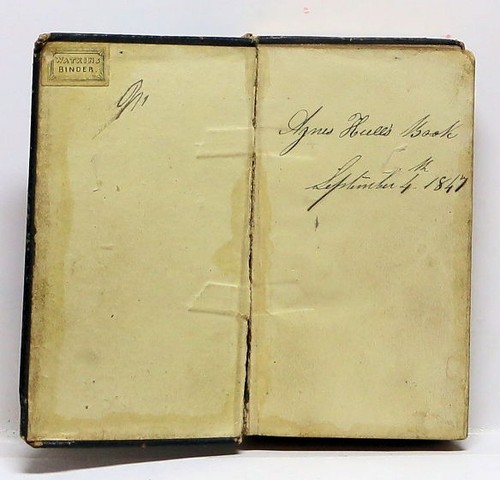 WATKINS
BINDER.
Agnes Hull's Book
September 4th. 1847